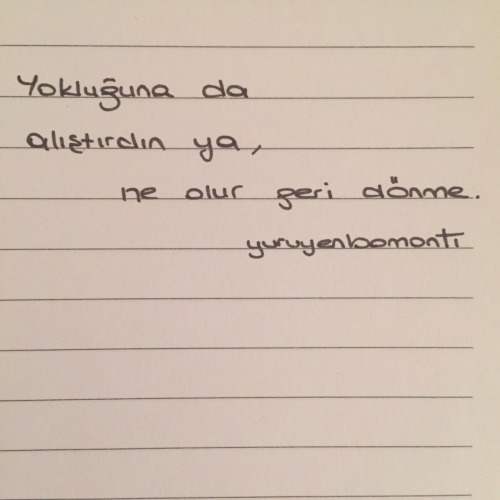 Yokluğuna da
alıştırdın ya,
ne olur geri dönme.
yuruyenbomonti